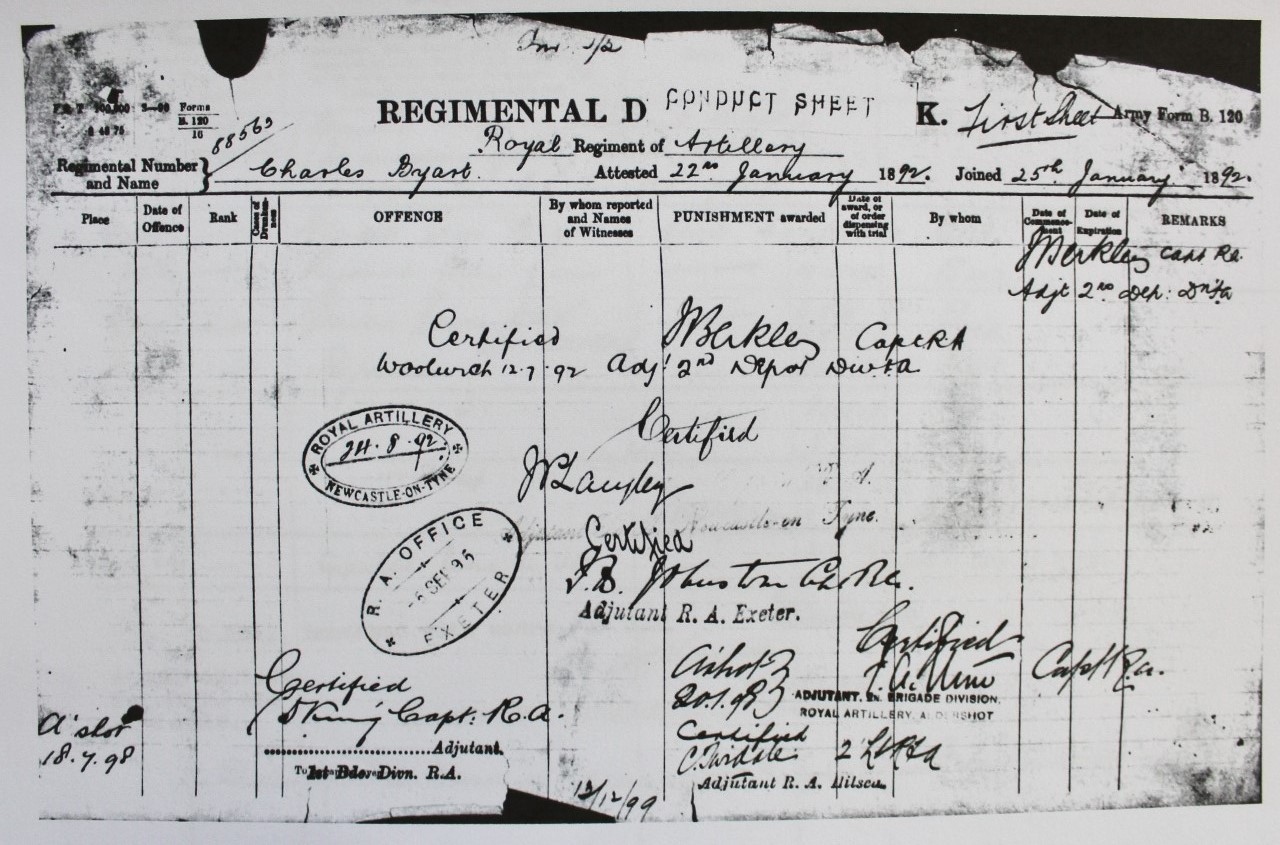 1/2
Forms
B. 120
16
REGIMENTAL D CONDUCT SHEET K. First Sheet Army Form B. 120
88563
Royal Regiment of Artillery
Regimental Number and Name } Charles Byart. Attested 22nd January 1892. Joined 25th January 1892.
Place
Date of Offence
Rank
Cases of Drunkenness
OFFENCE
By whom reported and Names of Witnesses
PUNISHMENT awarded
Date of award, or of order dispensing with trial
By whom
Date of Commencement
Date of Expiration
REMARKS
JBerkley Capt Ra.
Adjt 2nd Dep:
Certified JBerkley Capt RA
Woolwich 12.7.92 Adj 2nd Depot
ROYAL ARTILLERY
24.8.92
NEWCASTLE-ON-TYNE
Certified
Langley
Newcastle-on Tyne.
Certified
R. A. OFFICE
EXETER
Johnston
Adjutant R. A. Exeter.
Certified
Capt Ra.
20.1.98
ADJUTANT. BRIGADE DIVISION,
ROYAL ARTILLERY, ALDERSHOT
Certified
King Capt. R.A.
Adjutant.
Divn. R.A.
A'shot
18.7.98
Certified
2 Lt
Adjutant R. A.
12/12/99